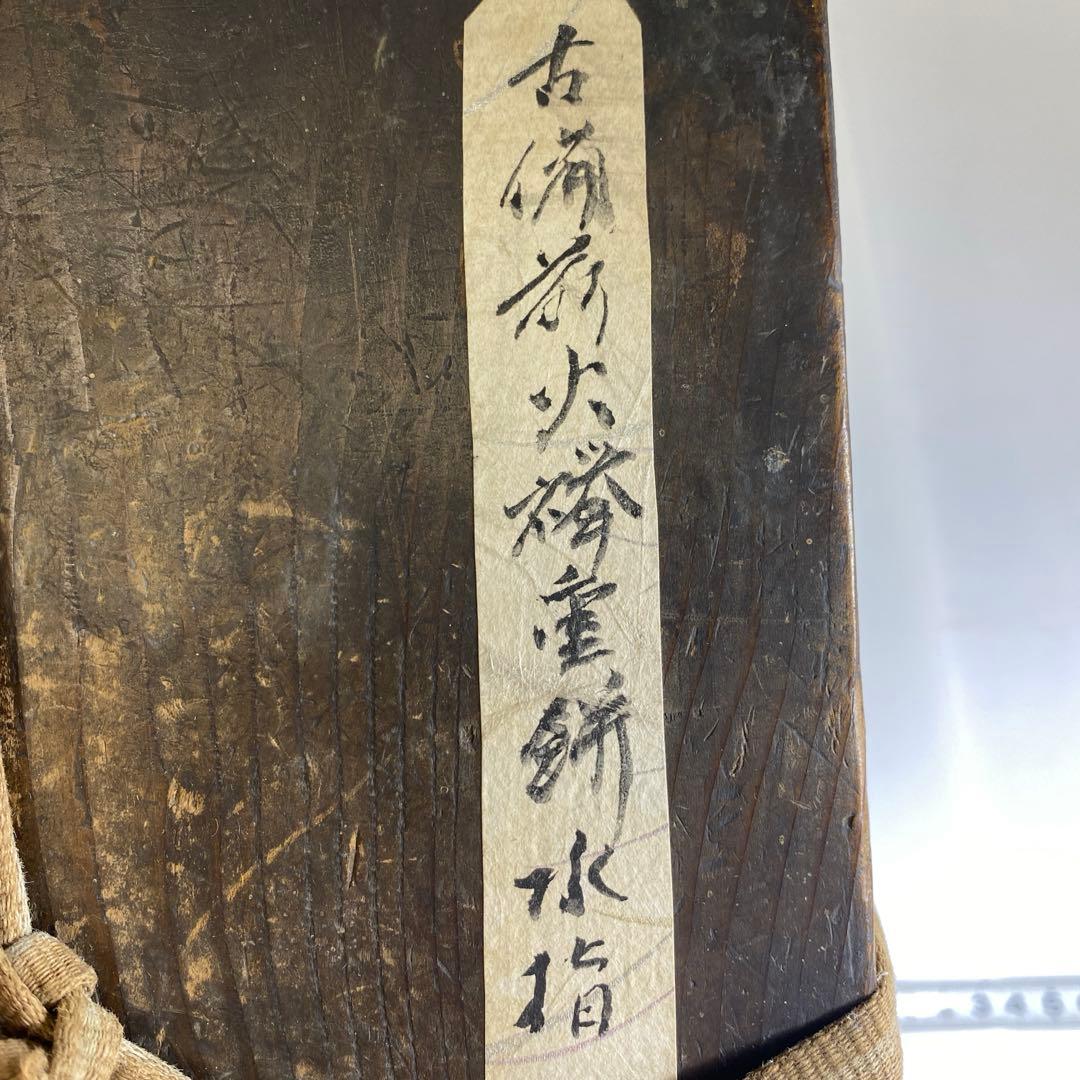 古備前火襷重餅水指
345